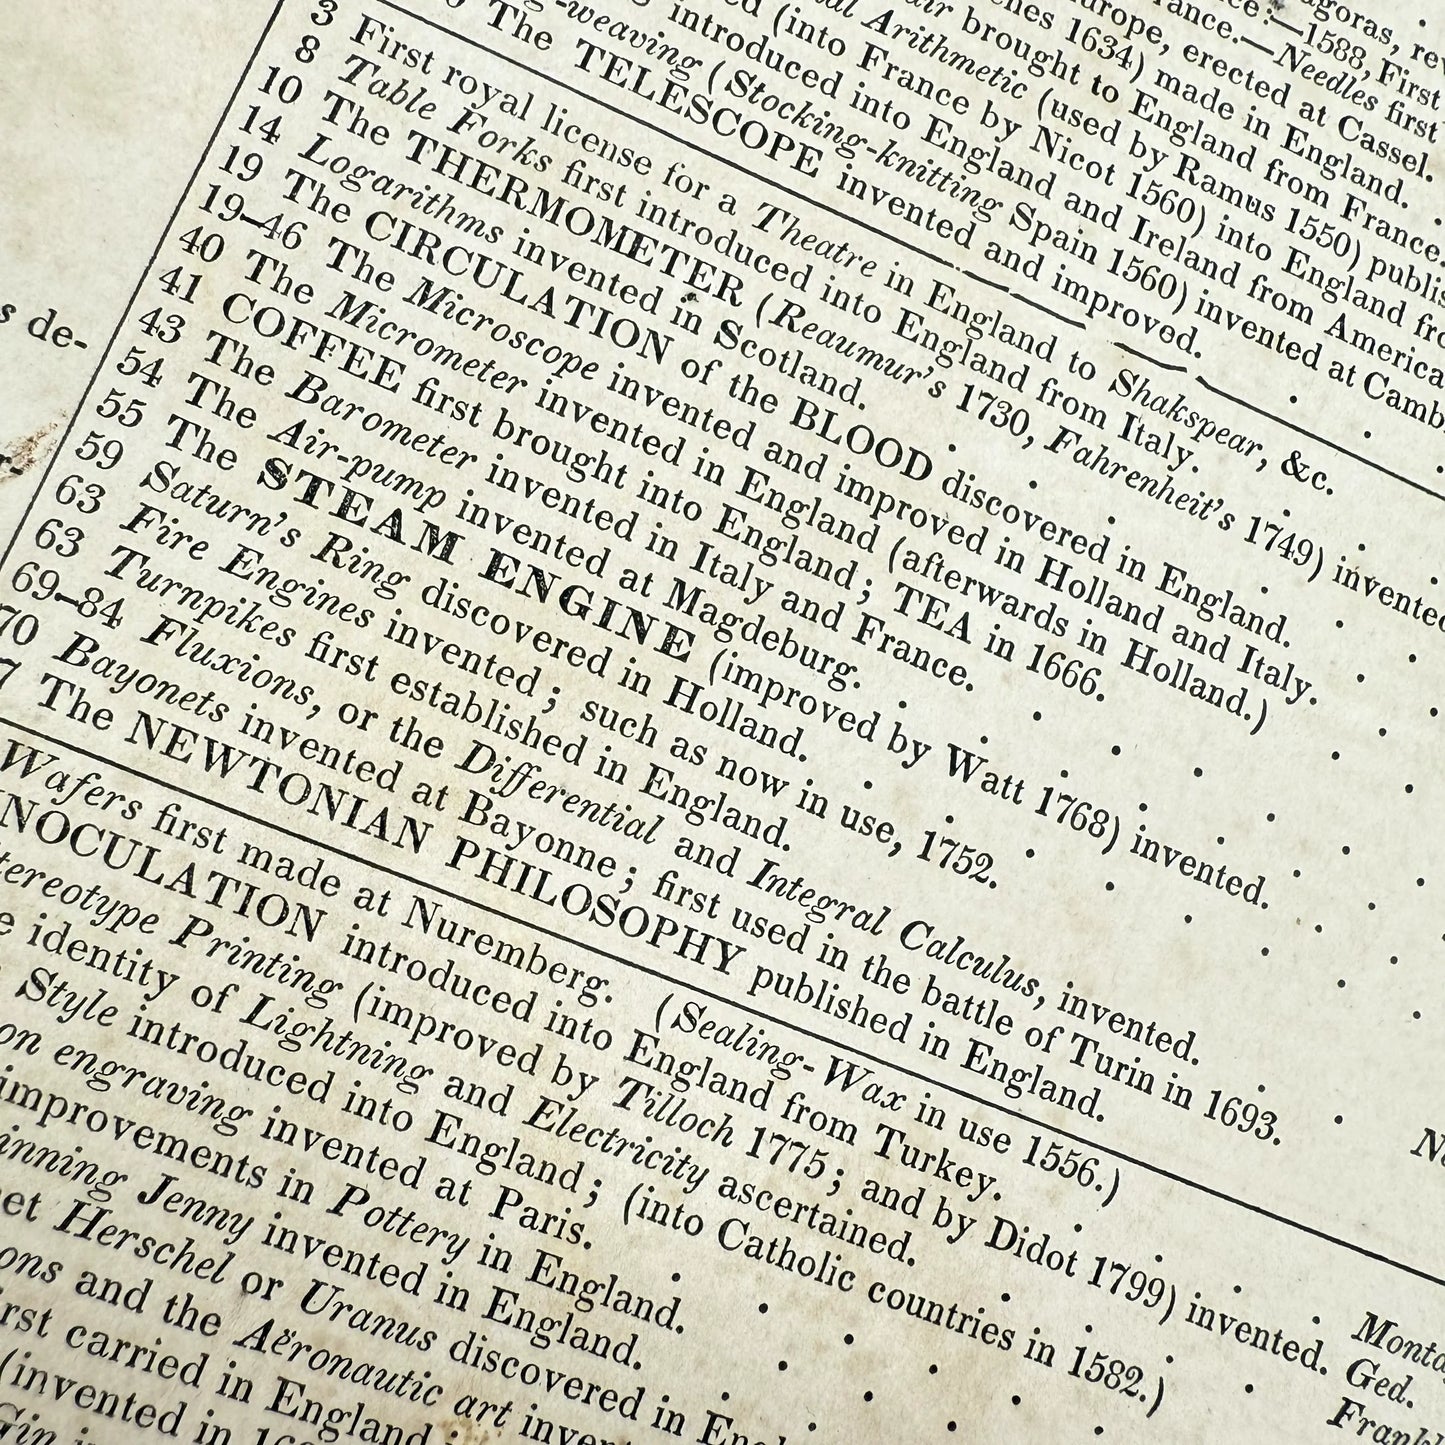 agoras, rev
ce:—1588, First
rance.—Needles first
Europe, erected at Cassel.
ches 1634) made in England.
air brought to England from France.
al Arithmetic (used by Ramus 1550) publis
d (into France by Nicot 1560) into England fro
introduced into England and Ireland from America
-weaving (Stocking-knitting Spain 1560) invented at Camb
The TELESCOPE invented and improved.
3 First royal license for a Theatre in England to Shakspear, &c.
8 Table Forks first introduced into England from Italy.
10 The THERMOMETER (Reaumur's 1730, Fahrenheit's 1749) invented
14 Logarithms invented in Scotland.
19 The CIRCULATION of the BLOOD discovered in England.
19–46 The Microscope invented and improved in Holland and Italy.
40 The Micrometer invented in England (afterwards in Holland.)
41 COFFEE first brought into England; TEA in 1666.
43 The Barometer invented in Italy and France.
54 The Air-pump invented at Magdeburg.
55 The STEAM ENGINE (improved by Watt 1768) invented.
59 Saturn's Ring discovered in Holland.
63 Fire Engines invented; such as now in use, 1752.
63 Turnpikes first established in England.
69–84 Fluxions, or the Differential and Integral Calculus, invented.
70 Bayonets invented at Bayonne; first used in the battle of Turin in 1693.
7 The NEWTONIAN PHILOSOPHY published in England.
Wafers first made at Nuremberg. (Sealing-Wax in use 1556.)
INOCULATION introduced into England from Turkey.
tereotype Printing (improved by Tilloch 1775; and by Didot 1799) invented. Ged.
e identity of Lightning and Electricity ascertained.
Style introduced into England; (into Catholic countries in 1582.)
on engraving invented at Paris.
improvements in Pottery in England.
inning Jenny invented in England.
et Herschel or Uranus discovered in Eng
ons and the Aëronautic art inven
rst carried in England i
(invented in 16
Gin i
s de-
r-
N
Monta
Frankl